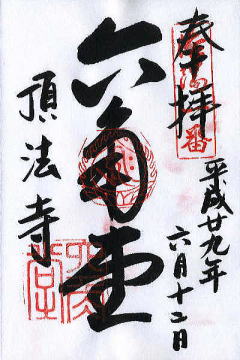 奉拝
平成廿九年
六月十二日
六角堂
頂法寺